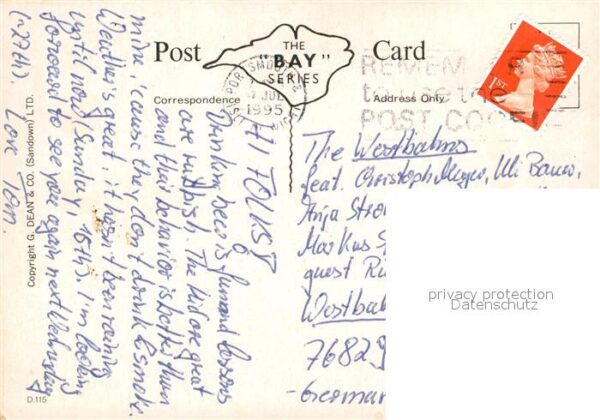 Post
THE
"BAY"
SERIES
Card
Correspondence
Address Only
PORTSMOUTH &
JUL
1995
REMEM
to use the
POST CO
1ST
HI FOLKS!
Drinking beer is fun and lessons
are rubbish. The kids are great
and their behavior is better than
mine 'cause they don't drink & smoke.
Weather's great, it hasn't been raining
until now (Sunday, 16th). I'm looking
forward to see you again next Wednesday
(~27th) Love Tom.
The Westbahns
feat. Christoph Meyer, Uli Bauer,
Anja Stro
Markus S
guest Ru
Westbah
76829
-German
privacy protection
Datenschutz
Copyright G. DEAN & CO. (Sandown) LTD.
D.115